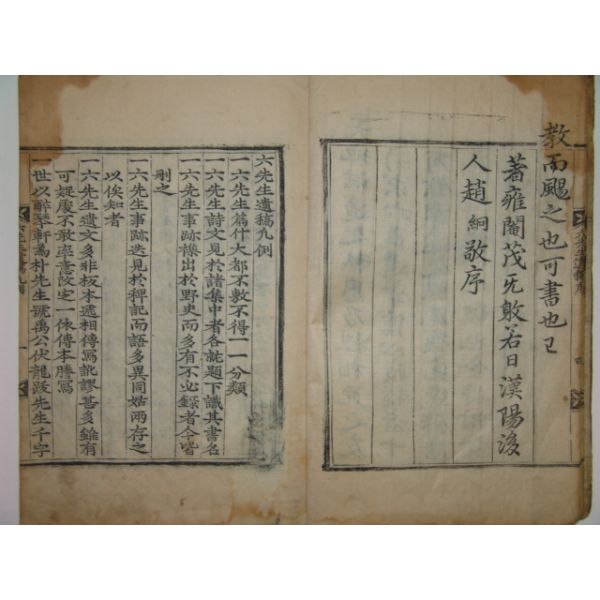 教而颺之也可書也已
著雍閹茂旡般若日漢陽後
人趙絅敬序
六先生遺稿凡例
一六先生篇什大都不敷不得一一分類
一六先生詩文見於諸集中者各就題下識其書名
一六先生事跡攙出於野史而多有不必錄者今皆
刪之
一六先生事跡迭見於稗記而語多異同姑兩存之
以俟知者
一六先生遺文多非板本遞相傳寫訛謬甚多雖有
可疑處不敢率意改定一依傳本謄寫
一世以醉琴軒爲朴先生號萬公伏龍跋先生千字